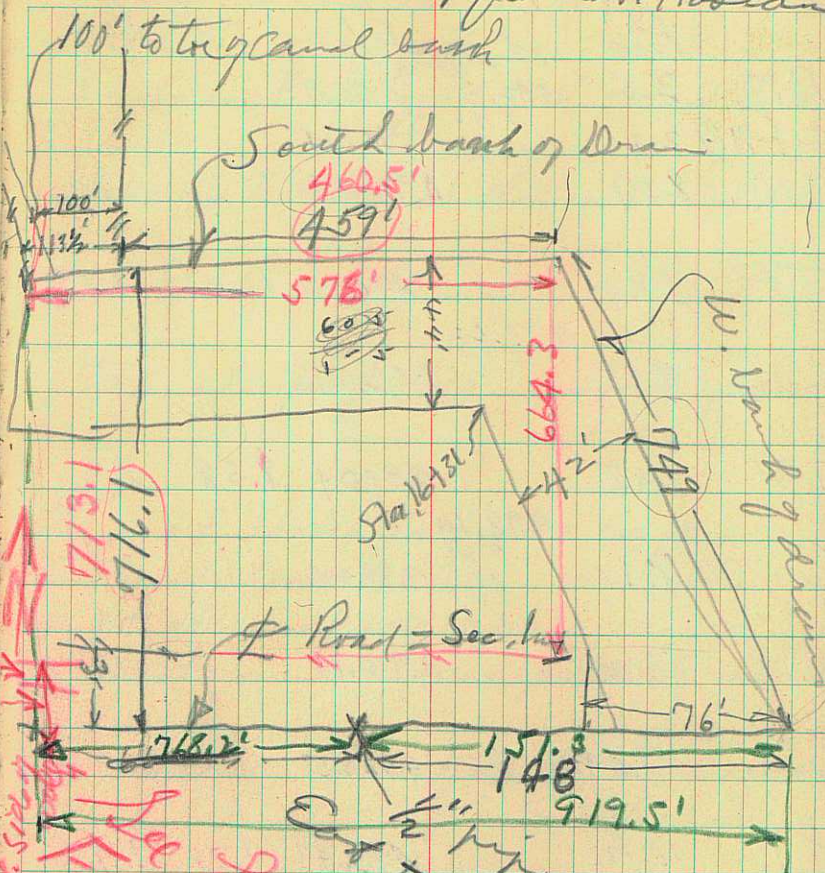 100' to toe of canal bank
South bank of Drain
460.5'
459'
100'
13½'
578'
44'
664.3
W. bank of drain
749
42'
Sta. 16+31
713.1
716.1
Road = Sec. line
76'
768.2'
151.3
148
919.5'
½"